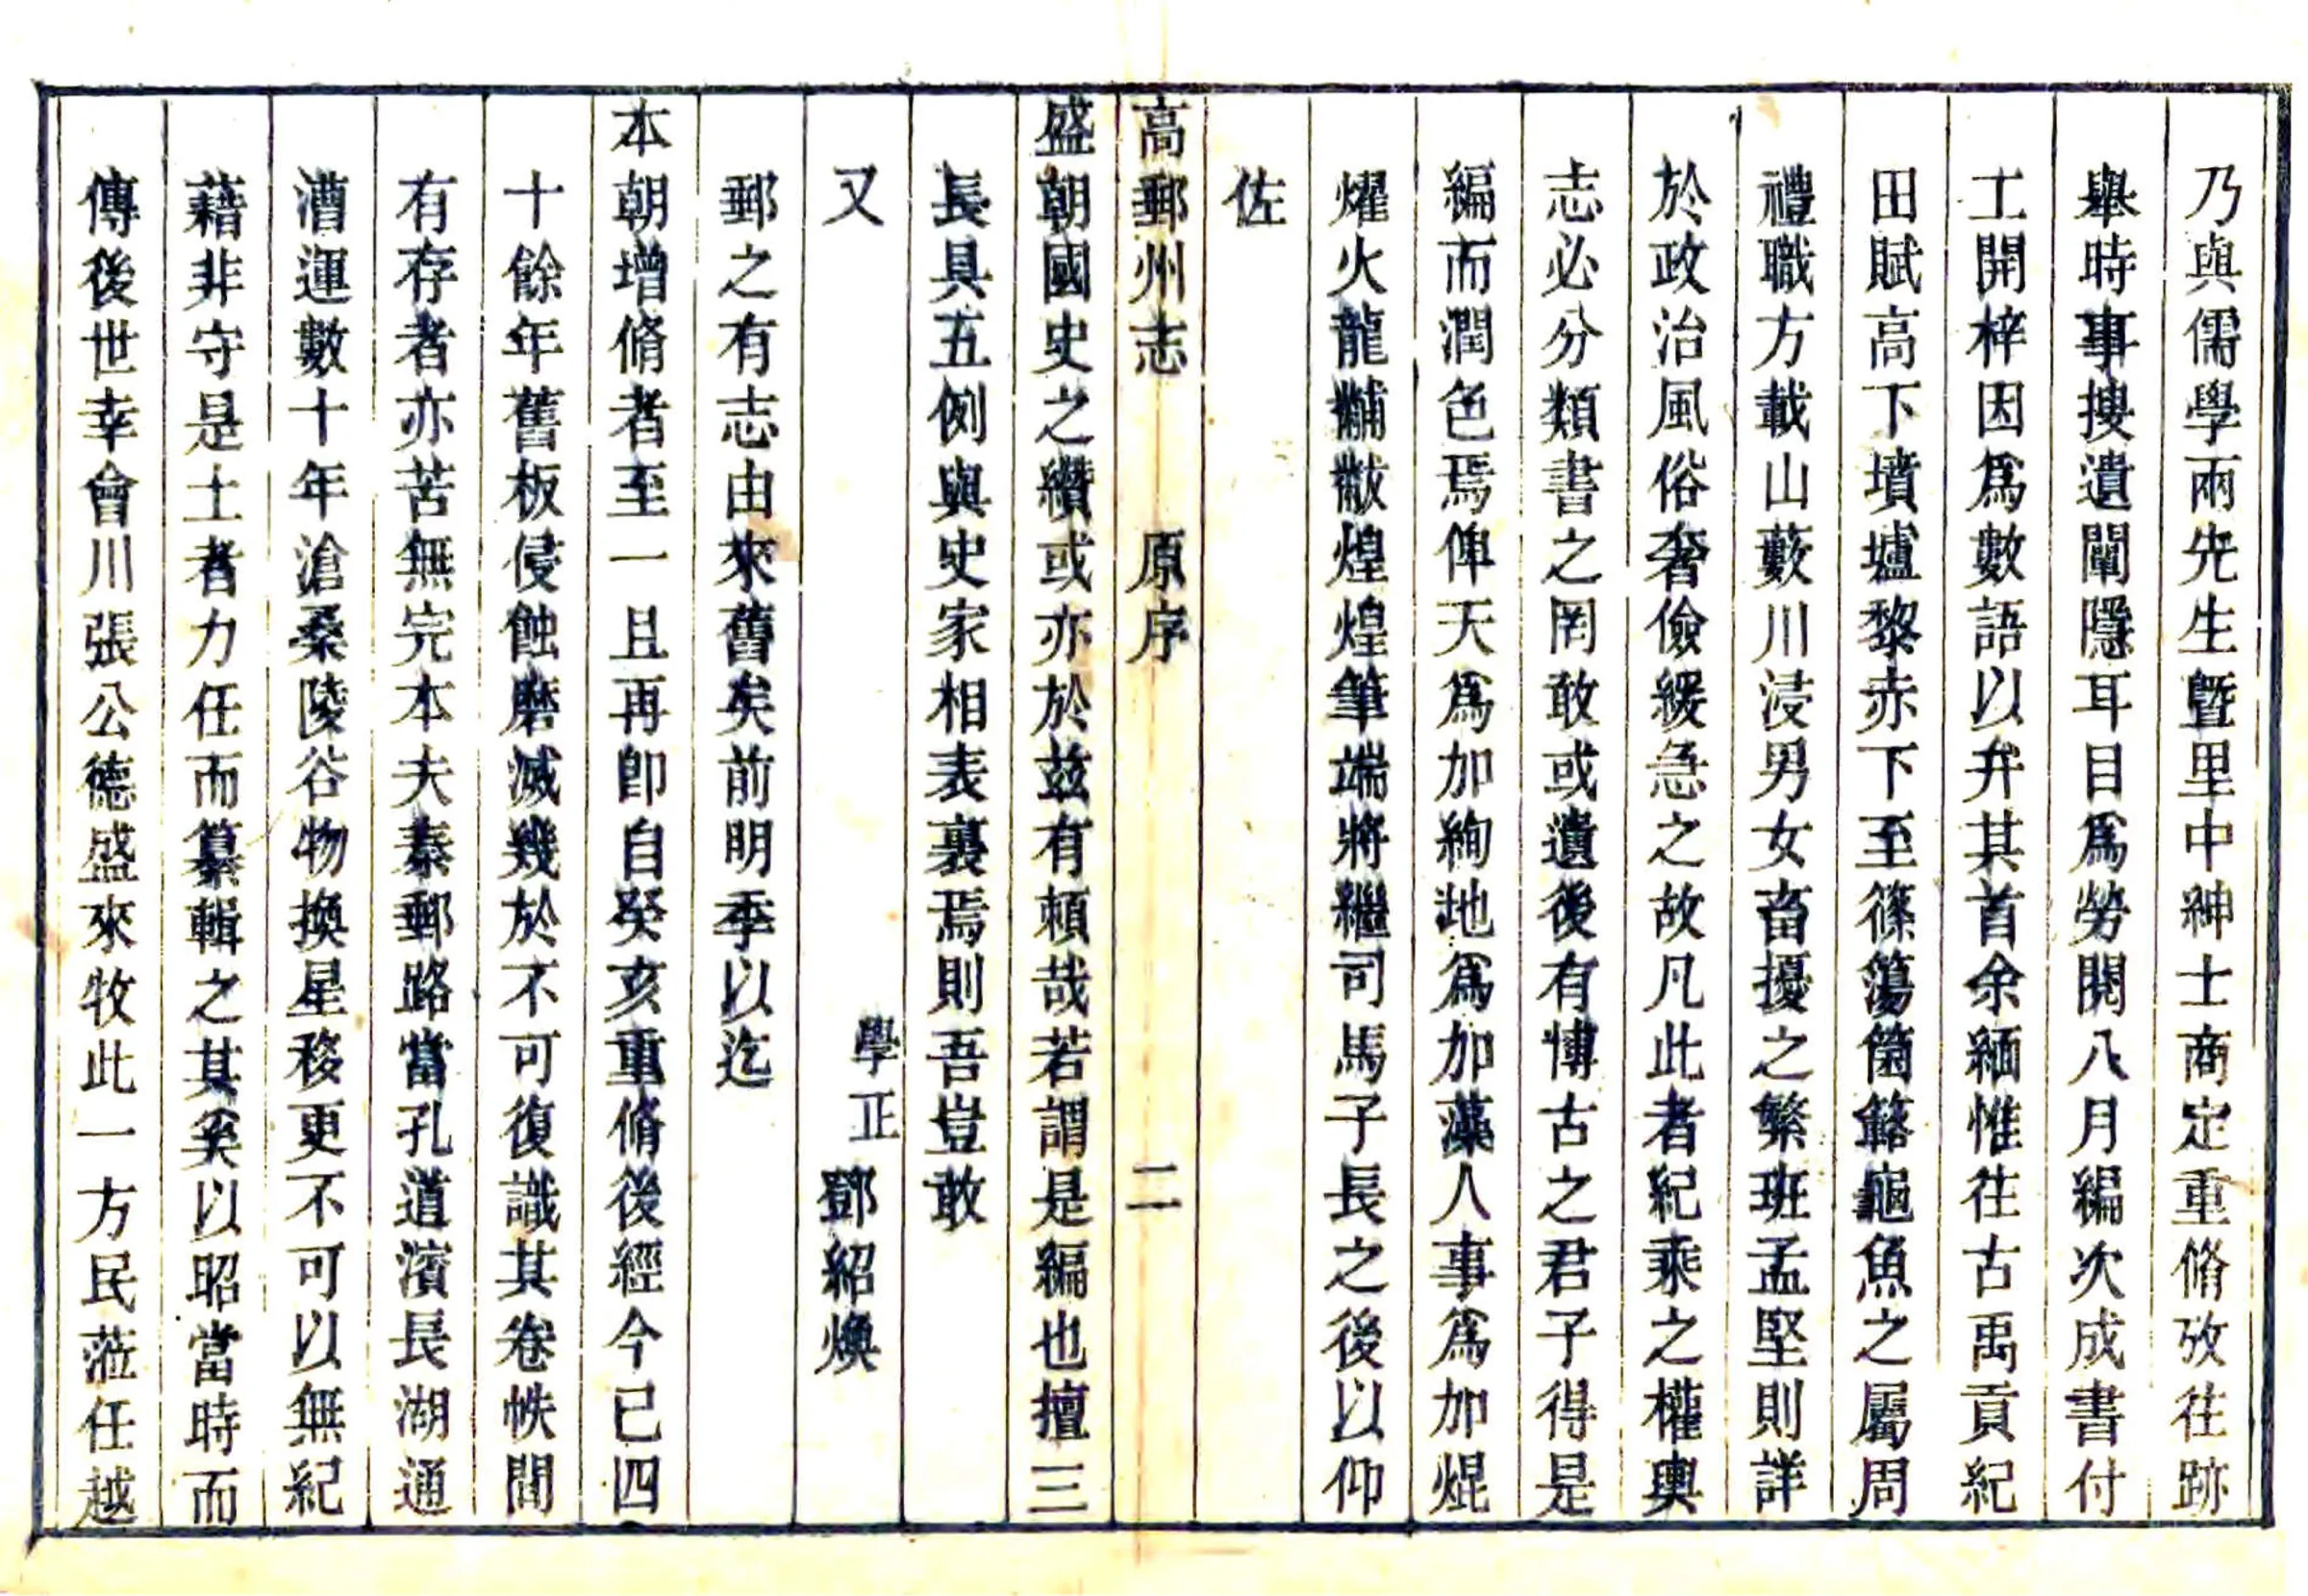 乃與儒學兩先生曁里中紳士商定重脩攷往跡
舉時事搜遺闡隱耳目爲勞閱八月編次成書付
工開梓因爲數語以弁其首余緬惟往古禹貢紀
田賦高下墳壚黎赤下至篠簜箘簵龜魚之屬周
禮職方載山藪川浸男女畜擾之繁班孟堅則詳
於政治風俗奢儉緩急之故凡此者紀乘之權輿
志必分類書之罔敢或遺後有博古之君子得是
編而潤色焉俾天爲加絢地爲加藻人事爲加焜
燿火龍黼黻煌煌筆端將繼司馬子長之後以仰
佐
高郵州志 原序 二
盛朝國史之纘或亦於兹有頼哉若謂是編也擅三
長具五例與史家相表裏焉則吾豈敢
又 學正 鄧紹煥
郵之有志由來舊矣前明季以迄
本朝增脩者至一且再卽自癸亥重脩後經今已四
十餘年舊板侵蝕磨滅幾於不可復識其卷帙間
有存者亦苦無完本夫秦郵路當孔道濱長湖通
漕運數十年滄桑陵谷物換星移更不可以無紀
藉非守是土者力任而纂輯之其奚以昭當時而
傳後世幸會川張公德盛來牧此一方民蒞任越